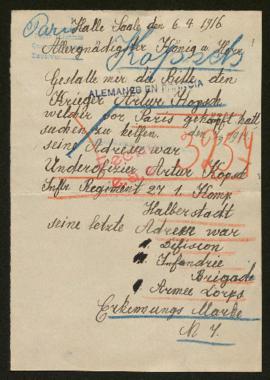 Paris
Halle Saale den 6.4.1916
Allergnädigster König u. Herr
Kopsch
Gestatte mir die Bitte, den
ALEMANES EN FRANCIA
Krieger Artur Kopsch
welcher vor Paris gekämpft hatt
suchen zu helfen.
3234
seine Adresse war
Underofizier Artur Kopsch
Inftr Regiment 27 1 Komp
Halberstadt
seine letzte Adresse war
" Difision
" Infandrie
Brigade
" Armee Corps
Erkennungs Marke
N. 4.